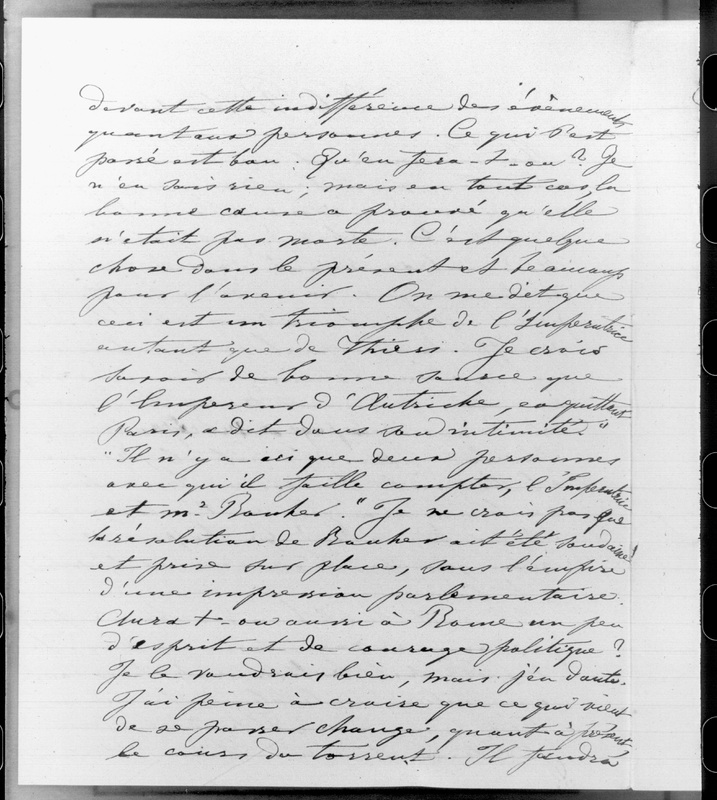 devant cette indifférence des évènements
quant aux personnes. Ce qui s'est
passé est bon. Qu'en fera-t-on ? Je
n'en sais rien ; mais en tout cas, la
bonne cause a prouvé qu'elle
n'était pas morte. C'est quelque
chose dans le présent et beaucoup
pour l'avenir. On me dit que
ceci est un triomphe de l'Impératrice
autant que de Thiers. Je crois
savoir de bonne source que
l'Empereur d'Autriche, en quittant
Paris, a dit dans son intimité :
"Il n'y a ici que deux personnes
avec qui il faille compter, l'Impératrice
et Mr Rouher." Je ne crois pas que
la résolution de Rouher ait été soudaine
et prise sur place, sous l'empire
d'une impression parlementaire.
Aura-t-on aussi à Rome un peu
d'esprit et de courage politique ?
Je le voudrais bien, mais j'en doute.
J'ai peine à croire que ce qui vient
de se passer change, quant à présent
le cours du torrent. Il faudra